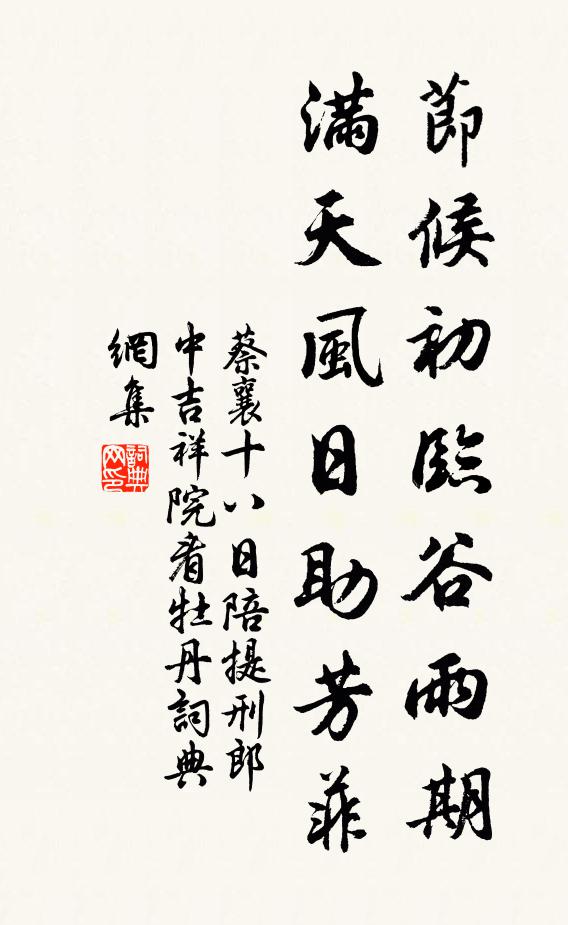 節候初臨谷雨期
滿天風日助芳菲
蔡襄十八日陪提刑郎
中吉祥院看牡丹詞典
網集
詞典
网印